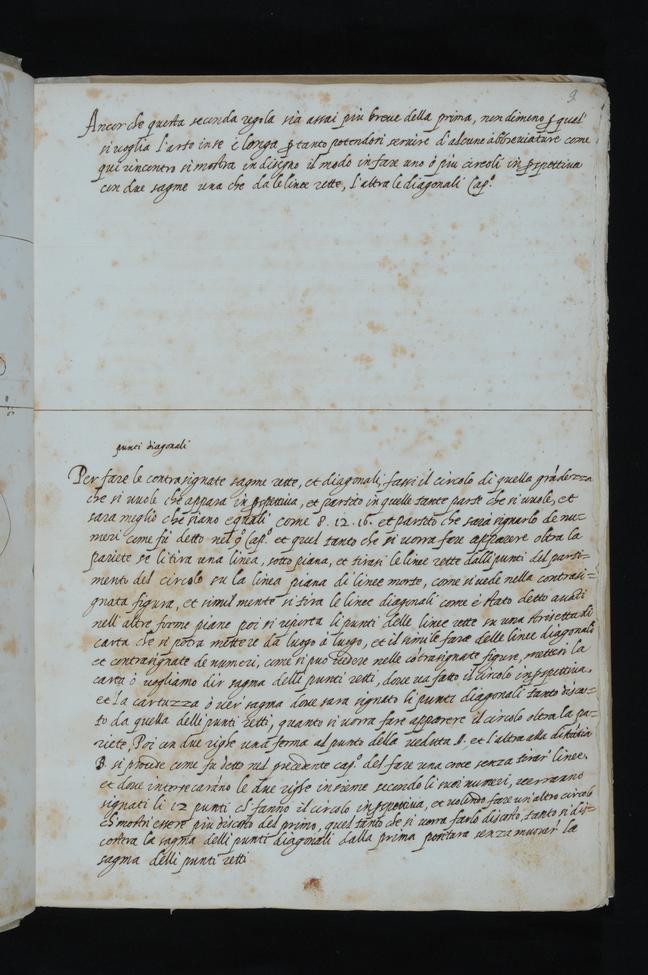 9
Ancor che questa seconda regola sia assai più breve della prima, nondimeno p qual
si voglia l'arte in se è longa p tanto potendosi servire d'alcune abbreviature come
qui rincontro si mostra in disegno il modo in fare uno ò più circoli in pspettiva
con due sagme una che da le linee rette, l'altra le diagonali Cap.º
punti diagonali
Per fare le contrasignate sagme rette, et diagonali, fassi il circolo di quella grãdezza
che si vuole che appara in pspettiva, et partito in quelle tante parte che si vuole, et
sara meglio che siano eguali, come 8. 12. 16. et partito che sara signarlo de nu-
meri come fù detto nel Cap.º et quel tanto che si vorra fare apparere oltra la
pariete se li tira una linea, sotto piana, et tirasi le linee rette dalli punti del parti-
mento del circolo su la linea piana di linee morte, come si vede nella contrasi-
gnata figura, et simil mente si tira le linee diagonali come è stato detto
nell'altre forme piane poi si reporta li punti delle linee rette su una
carta che si potra mettere da luogo à luogo, et il simile farai delle linee diagonali
et contrasignate de numeri, come si può vedere nelle cõtrasignate figure, metterai la
carta ò vogliamo dir sagma delli punti retti, dove va fatto il circolo in pspettiva,
et la cartuzza ò ver sagma dove sara signato li punti diagonali tanto disco-
sto da quella delli punti retti, quanto si vorra fare apparere il circolo oltra la pa-
riete, Poi con due righe una ferma al punto della veduta et l'altra alla distãtia
B si procede come fu detto nel precedente cap.º del fare una croce senza tirar linee,
et dove intersecarãno le due righe insieme secondo li suoi numeri, verranno
signati li 12 punti fanno il circolo in pspettiva, et volendo fare un'altro circolo
mostri essere più discosto del primo, quel tanto che si vorra farlo discosto, tanto si di-
costera la sagma delli punti diagonali dalla prima senza muovar la
sagma delli punti retti